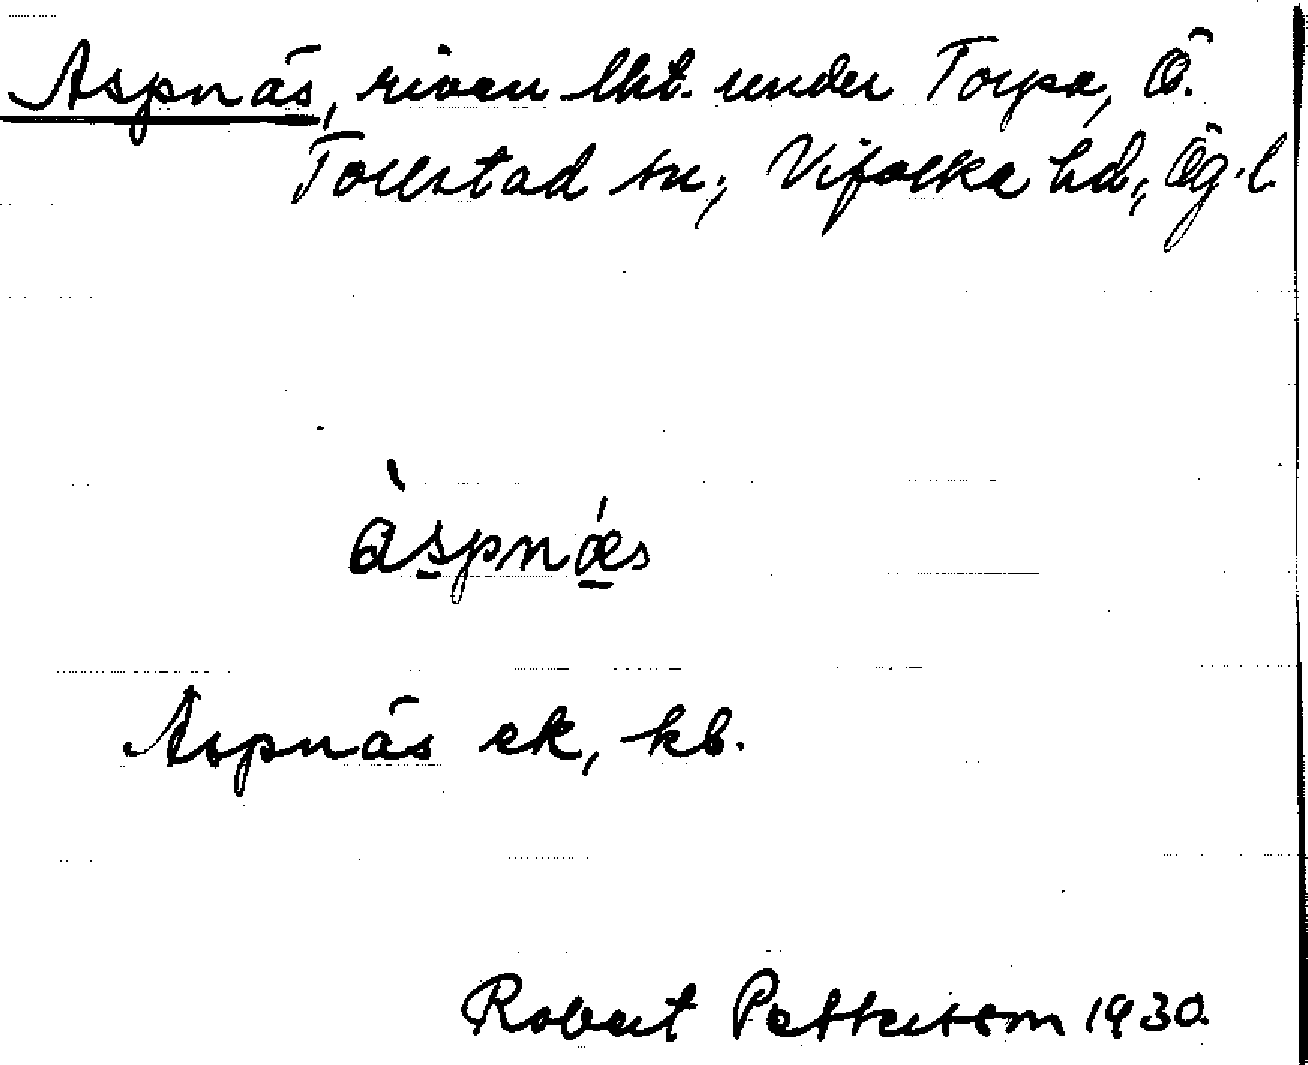 Aspnäs, riven lht. under Torpa, Ö.
Tollstad sn; Vifolka hd., Ög. l.
àspnǽs
Aspnäs ek, kb.
Robert Pettersson 1930.